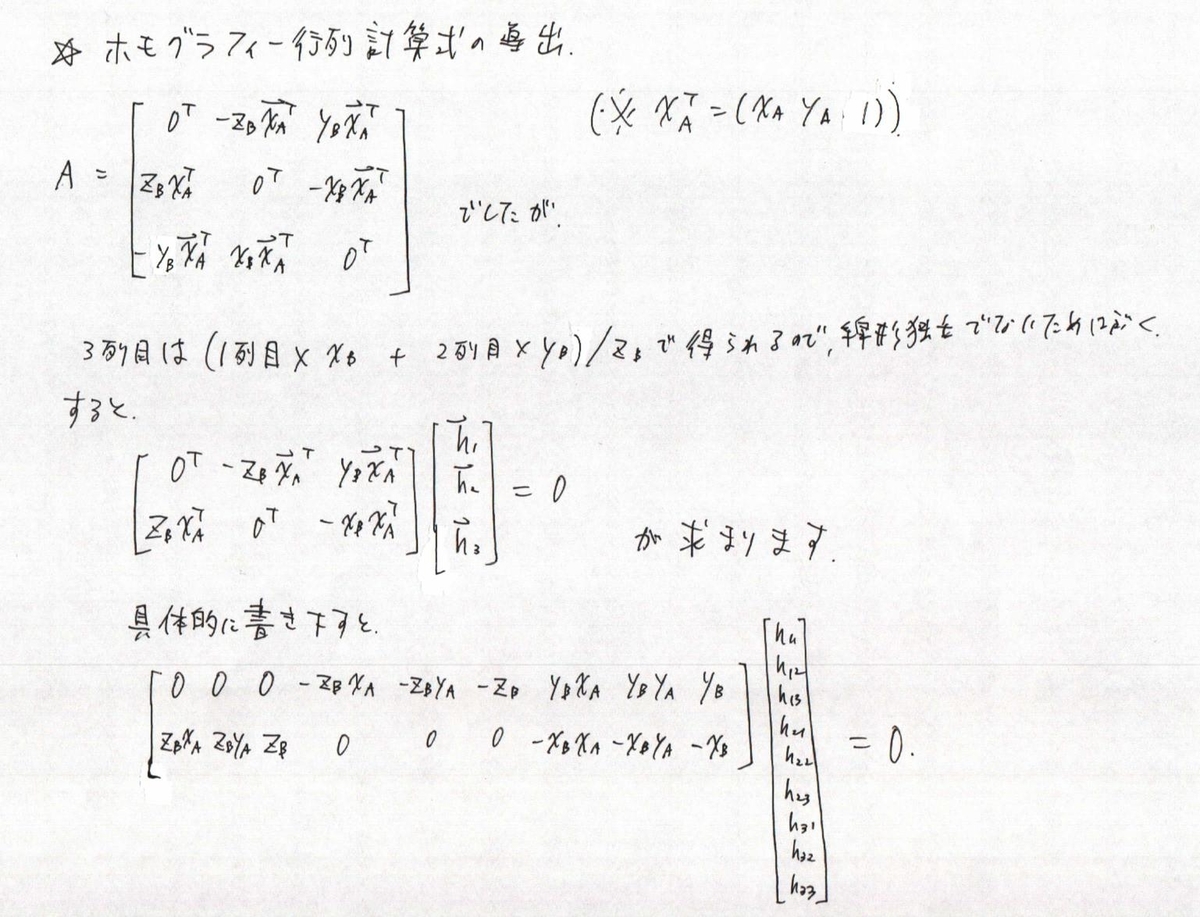 ☆ ホモグラフィー行列計算式の導出.
A = [ 0ᵀ -z_B x⃗_Aᵀ y_B x⃗_Aᵀ (※ x_Aᵀ = (x_A y_A 1))
z_B x_Aᵀ 0ᵀ -x_B x⃗_Aᵀ
-y_B x⃗_Aᵀ x_B x⃗_Aᵀ 0ᵀ ] でしたが.
3列目は (1列目 × x_B + 2列目 × y_B) / z_B で得られるので, 線形独立でないため はぶく.
すると.
[ 0ᵀ -z_B x⃗_Aᵀ y_B x⃗_Aᵀ
z_B x_Aᵀ 0ᵀ -x_B x_Aᵀ ] [ h⃗₁ h⃗₂ h⃗₃ ] = 0 が求まります.
具体的に書き下すと.
[ 0 0 0 -z_B x_A -z_B y_A -z_B y_B x_A y_B y_A y_B
z_B x_A z_B y_A z_B 0 0 0 -x_B x_A -x_B y_A -x_B ] [ h₁₁ h₁₂ h₁₃ h₂₁ h₂₂ h₂₃ h₃₁ h₃₂ h₃₃ ] = 0.